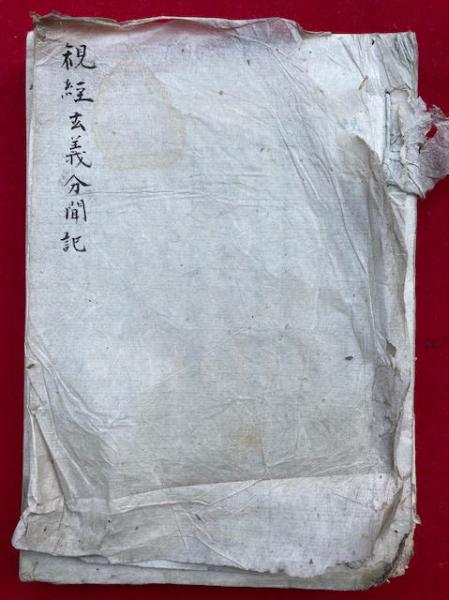 観経玄義分聞記